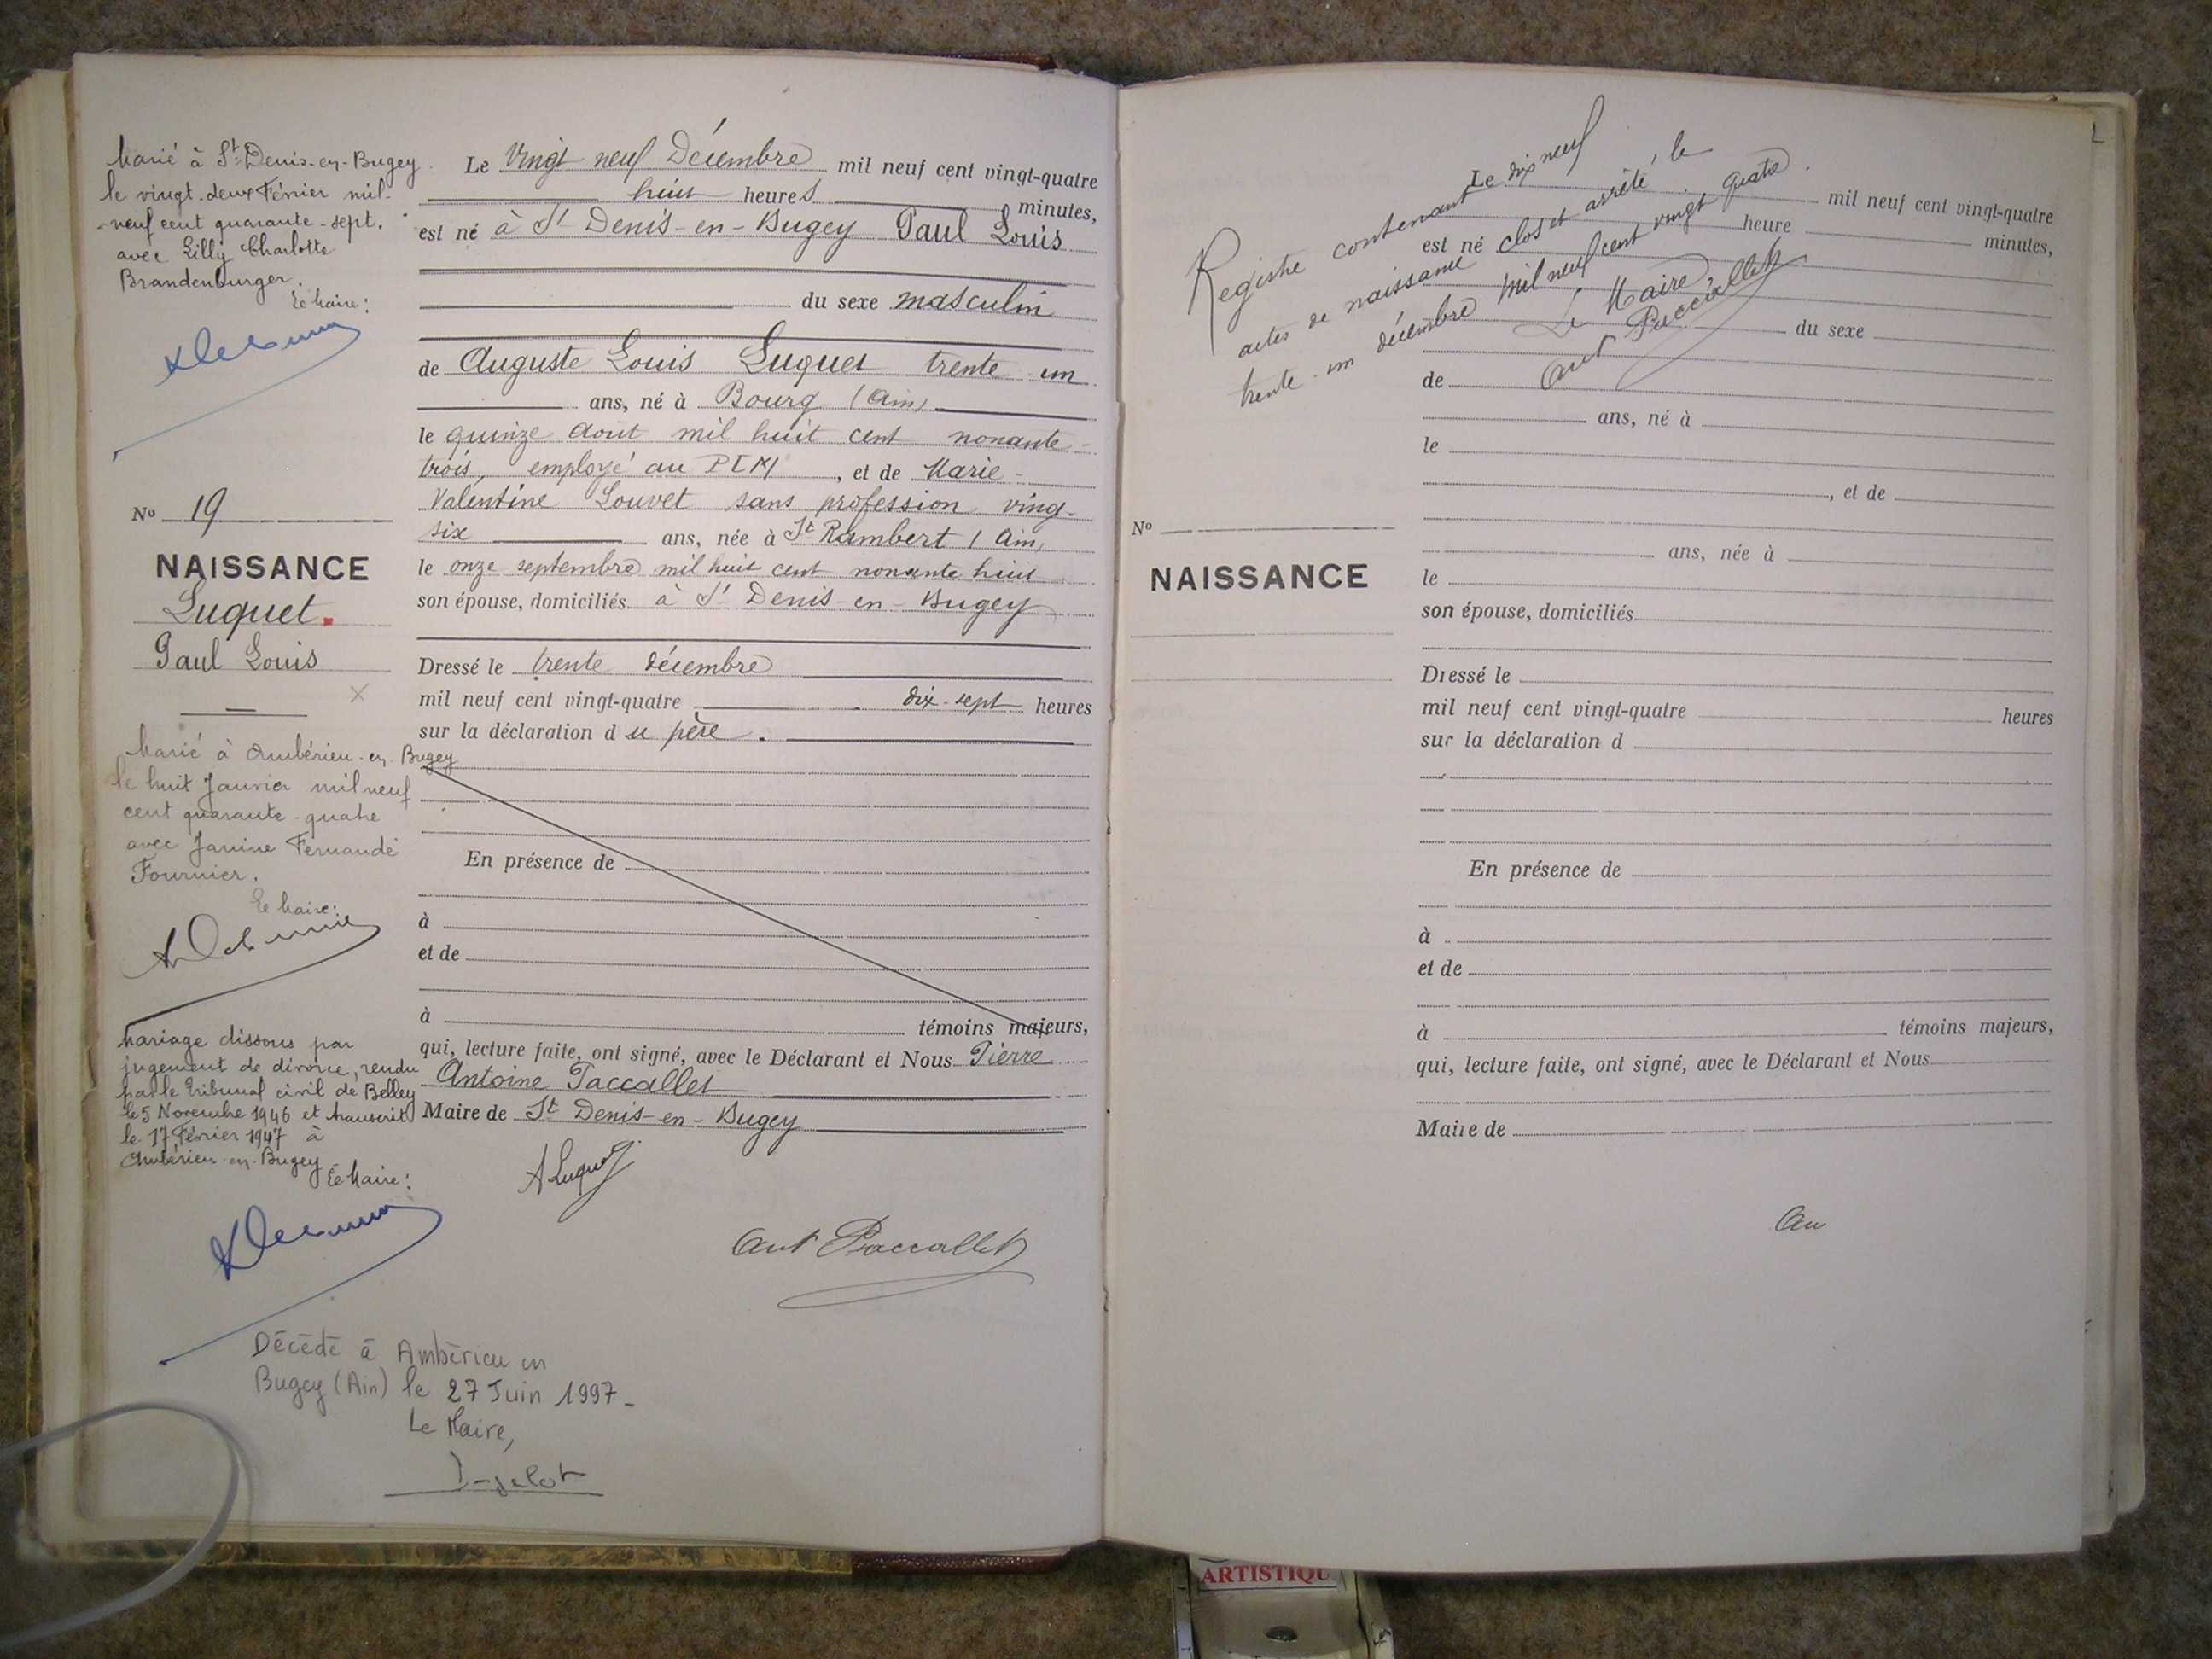 Marié à St-Denis-en-Bugey
le vingt-deux Février mil-
-neuf cent quarante-sept.
avec Lilly Charlotte
Brandenburger.
Le Maire:
No 19
NAISSANCE
Luquet.
Paul Louis
Marié à Ambérieu-en-Bugey
le huit Janvier mil neuf
cent quarante-quatre
avec Janine Fernande
Fournier.
Le Maire:
Mariage dissous par
jugement de divorce, rendu
par le Tribunal civil de Belley
le 5 Novembre 1946 et transcrit
le 17 Février 1947 à
Ambérieu-en-Bugey
Le Maire:
Le Vingt neuf Décembre mil neuf cent vingt-quatre
huit heures minutes,
est né à St Denis-en-Bugey Paul Louis
du sexe masculin
de Auguste Louis Luquet trente un
ans, né à Bourg (Ain)
le quinze Août mil huit cent nonante-
trois, employé au PLM, et de Marie-
Valentine Louvet sans profession ving-
six ans, née à St Rambert (Ain)
le onze septembre mil huit cent nonante huit
son épouse, domiciliés à St Denis-en-Bugey
Dressé le trente décembre
mil neuf cent vingt-quatre dix-sept heures
sur la déclaration du père.
En présence de
à
et de
à témoins majeurs,
qui, lecture faite, ont signé, avec le Déclarant et Nous Pierre
Antoine Paccallet
Maire de St Denis-en-Bugey
A Luquet
Ant Paccallet
Décédé à Ambérieu en
Bugey (Ain) le 27 Juin 1997-
Le Maire,
Registre contenant dix neuf
actes de naissance clos et arrêté le
trente-un décembre mil neuf cent vingt quatre.
Le Maire,
Ant Paccallet
No
NAISSANCE
Le mil neuf cent vingt-quatre
heure minutes,
est né
du sexe
de
ans, né à
le
, et de
ans, née à
le
son épouse, domiciliés
Dressé le
mil neuf cent vingt-quatre heures
sur la déclaration d
En présence de
à
et de
à témoins majeurs,
qui, lecture faite, ont signé, avec le Déclarant et Nous
Maire de
Au
ARTISTIQU